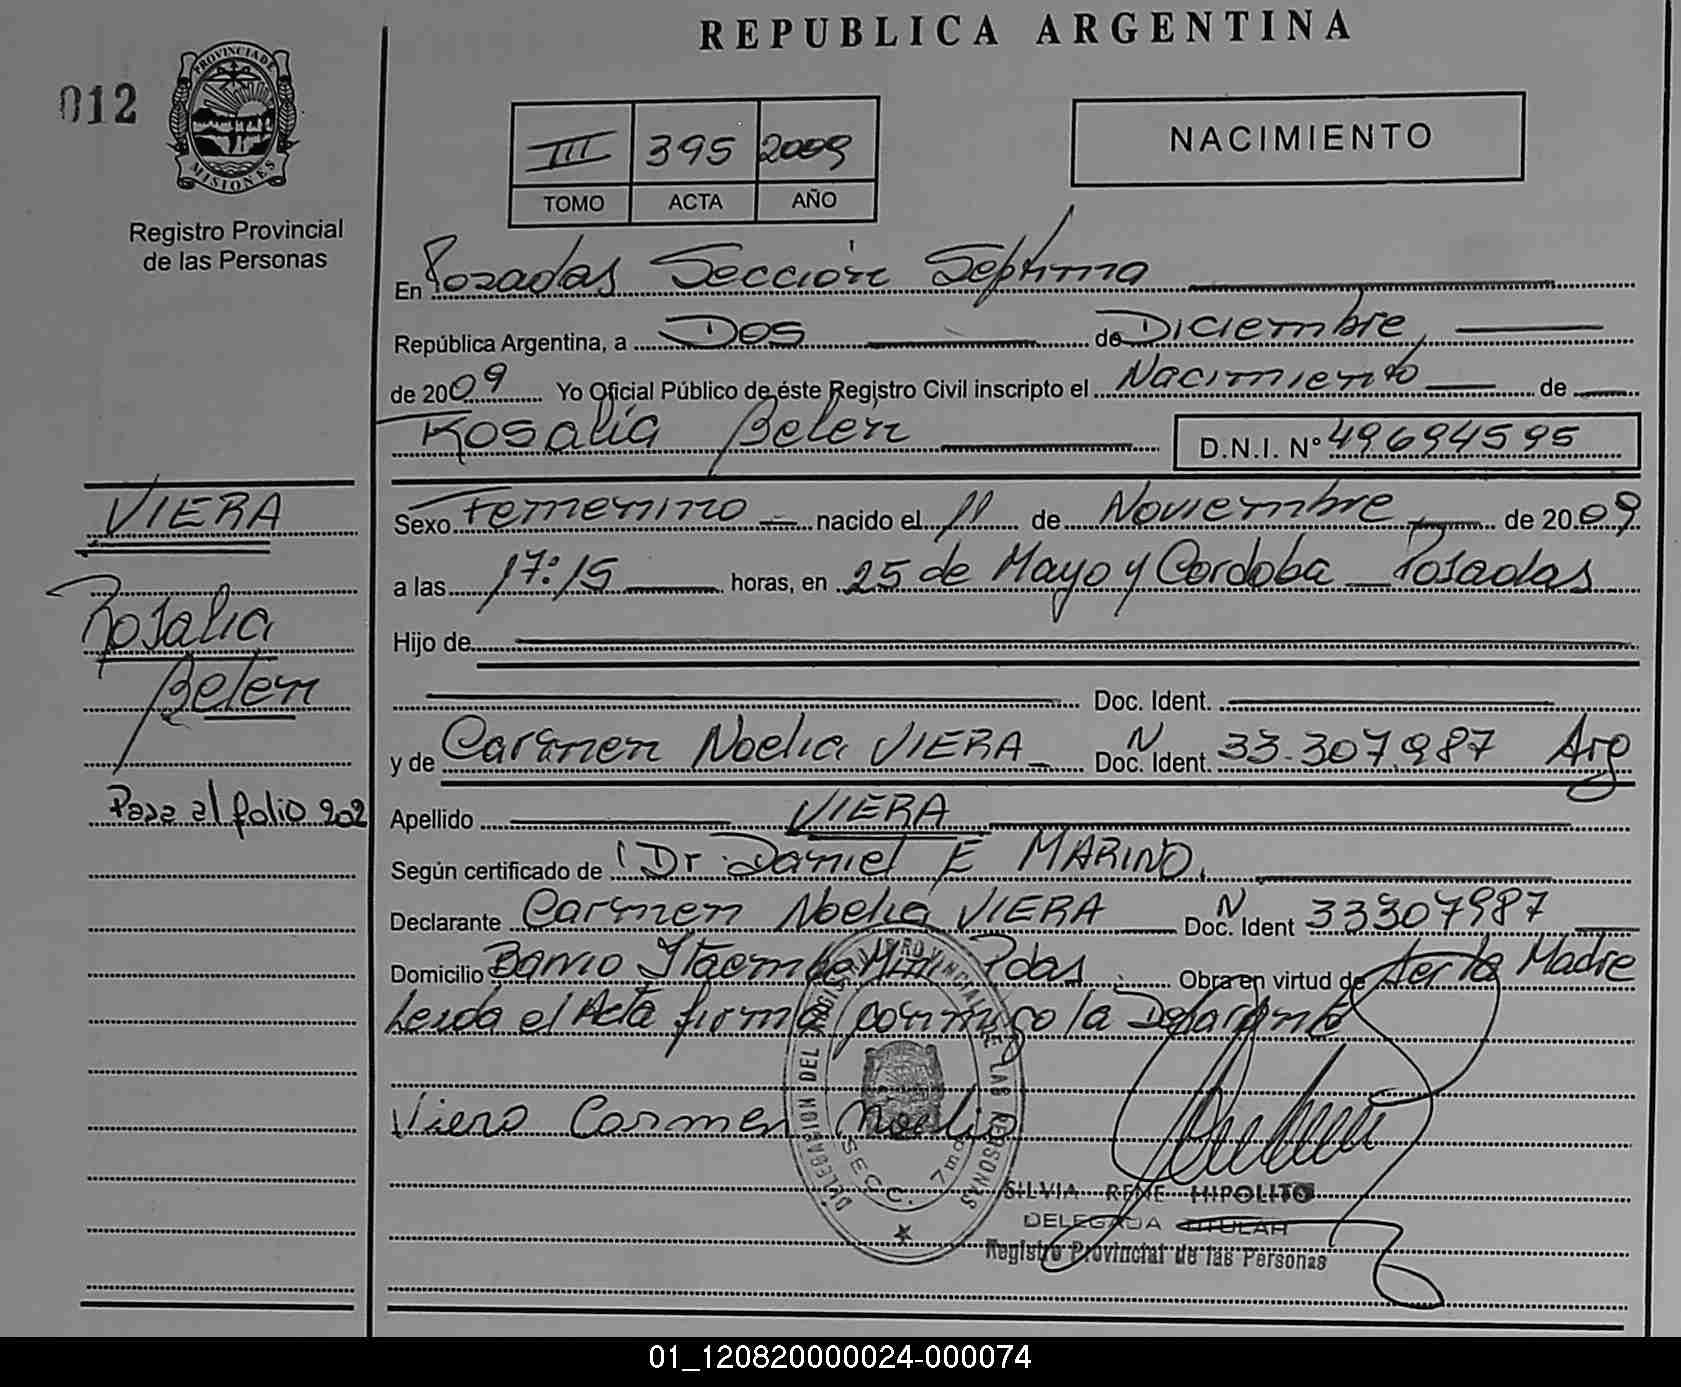 REPUBLICA ARGENTINA
012
PROVINCIA DE MISIONES
Registro Provincial
de las Personas
III 395 2009
TOMO ACTA AÑO
NACIMIENTO
En Posadas Sección Septima
República Argentina, a Dos de Diciembre,
de 2009 Yo Oficial Público de éste Registro Civil inscripto el Nacimiento de
Rosalia Belén D.N.I. Nº 49694595
VIERA
Rosalia
Belen
Pasa al folio 202
Sexo Femenino nacido el 11 de Noviembre, de 2009
a las 17:15 horas, en 25 de Mayo y Cordoba Posadas
Hijo de
Doc. Ident.
y de Carmen Noelia VIERA Doc. N Ident. 33.307.987 Arg
Apellido VIERA
Según certificado de Dr Daniel E MARINO,
Declarante Carmen Noelia VIERA Doc. N Ident 33307987
Domicilio Barrio Itaembe Mini Pdas. Obra en virtud de ser la Madre
Leida el Acta firma conmigo la Declarante
Viera Carmen Noelia
DELEGACION DEL REGISTRO PROVINCIAL DE LAS PERSONAS
SECC. 7ma
SILVIA RENE HIPOLITO
DELEGADA TITULAR
Registro Provincial de las Personas
01_120820000024-000074